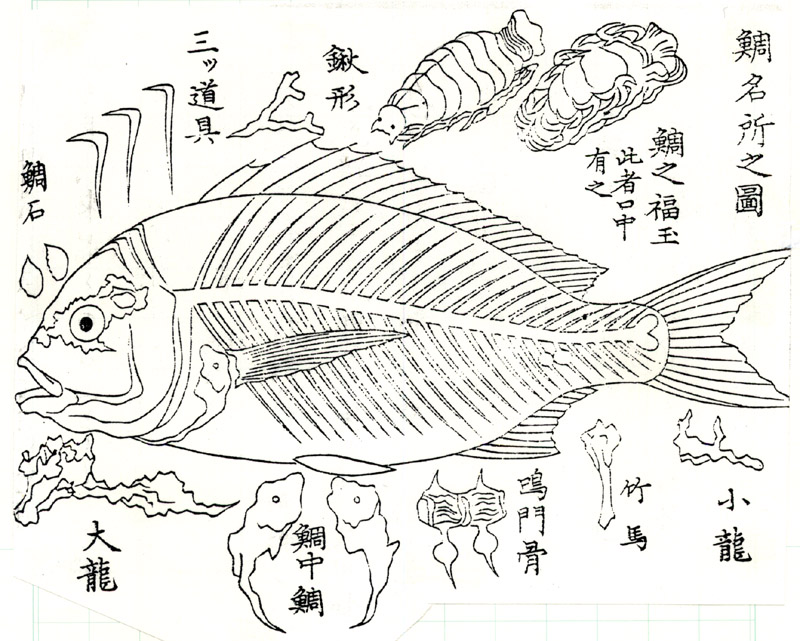 鯛名所之圖
鯛之福玉
此者口中
有之
鍬形
三ッ道具
鯛石
大龍
鯛中鯛
鳴門骨
竹馬
小龍